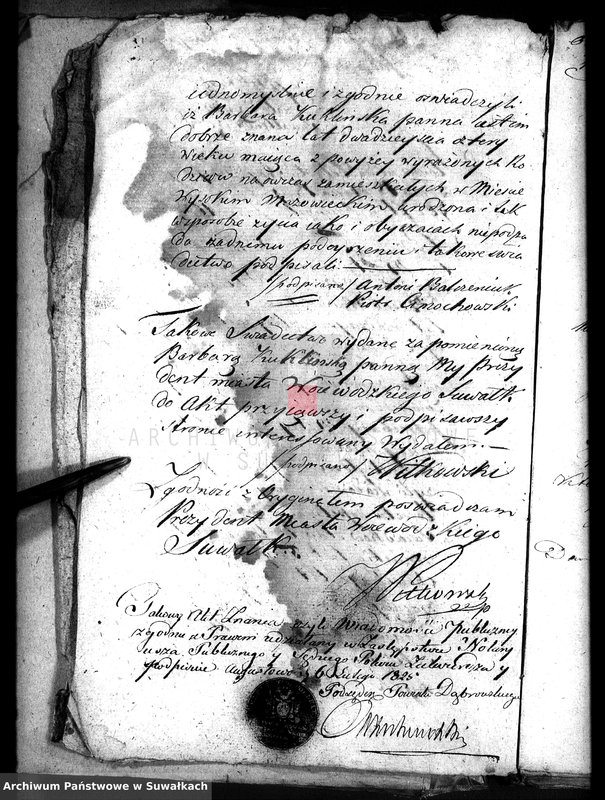 iednomyślnie i zgodnie oswiadczyli
iż Barbara Kuklinska panna iest im
dobrze znana lat dwadzieścia cztery
wieku maiąca z powyżey wyrażonych Ro
dziców na ówczas zamieszkałych w Miescie
Wysokim Mazowieckim urodzona i tak
w sposobie życia iako i obyczaiach niepodpa
da żadnemu podeyrzeniu i takowe świa
dectwo podpisali
/podpisano/ Antoni
Piotr Grochowski
Takowe Swiadectwo wydane za pomienioną
Barbarą Kuklinską panną My Prezy
dent miasta Woiewódzkiego Suwałk
do Akt przyiąwszy i podpisawszy
Stronie interesowany wydałem.—
/podpisano/ Witkowski
Zgodność z Oryginałem poświadczam
Prezydent Miasta Woiewodzkiego
Suwałk
Witkowski
Takowy Akt Znania czyli Wiadomości Publiczney
zgodnie z Prawem udzielony w Zastępstwie Notary
usza Publicznego y Sędziego Pokoiu Zatwierdza y
podpisuie Augustowo d. 6 Lutego 1825
Podsędek Powiatu Dąbrowskiego
ARCHIWUM
W SU
Archiwum Państwowe w Suwałkach